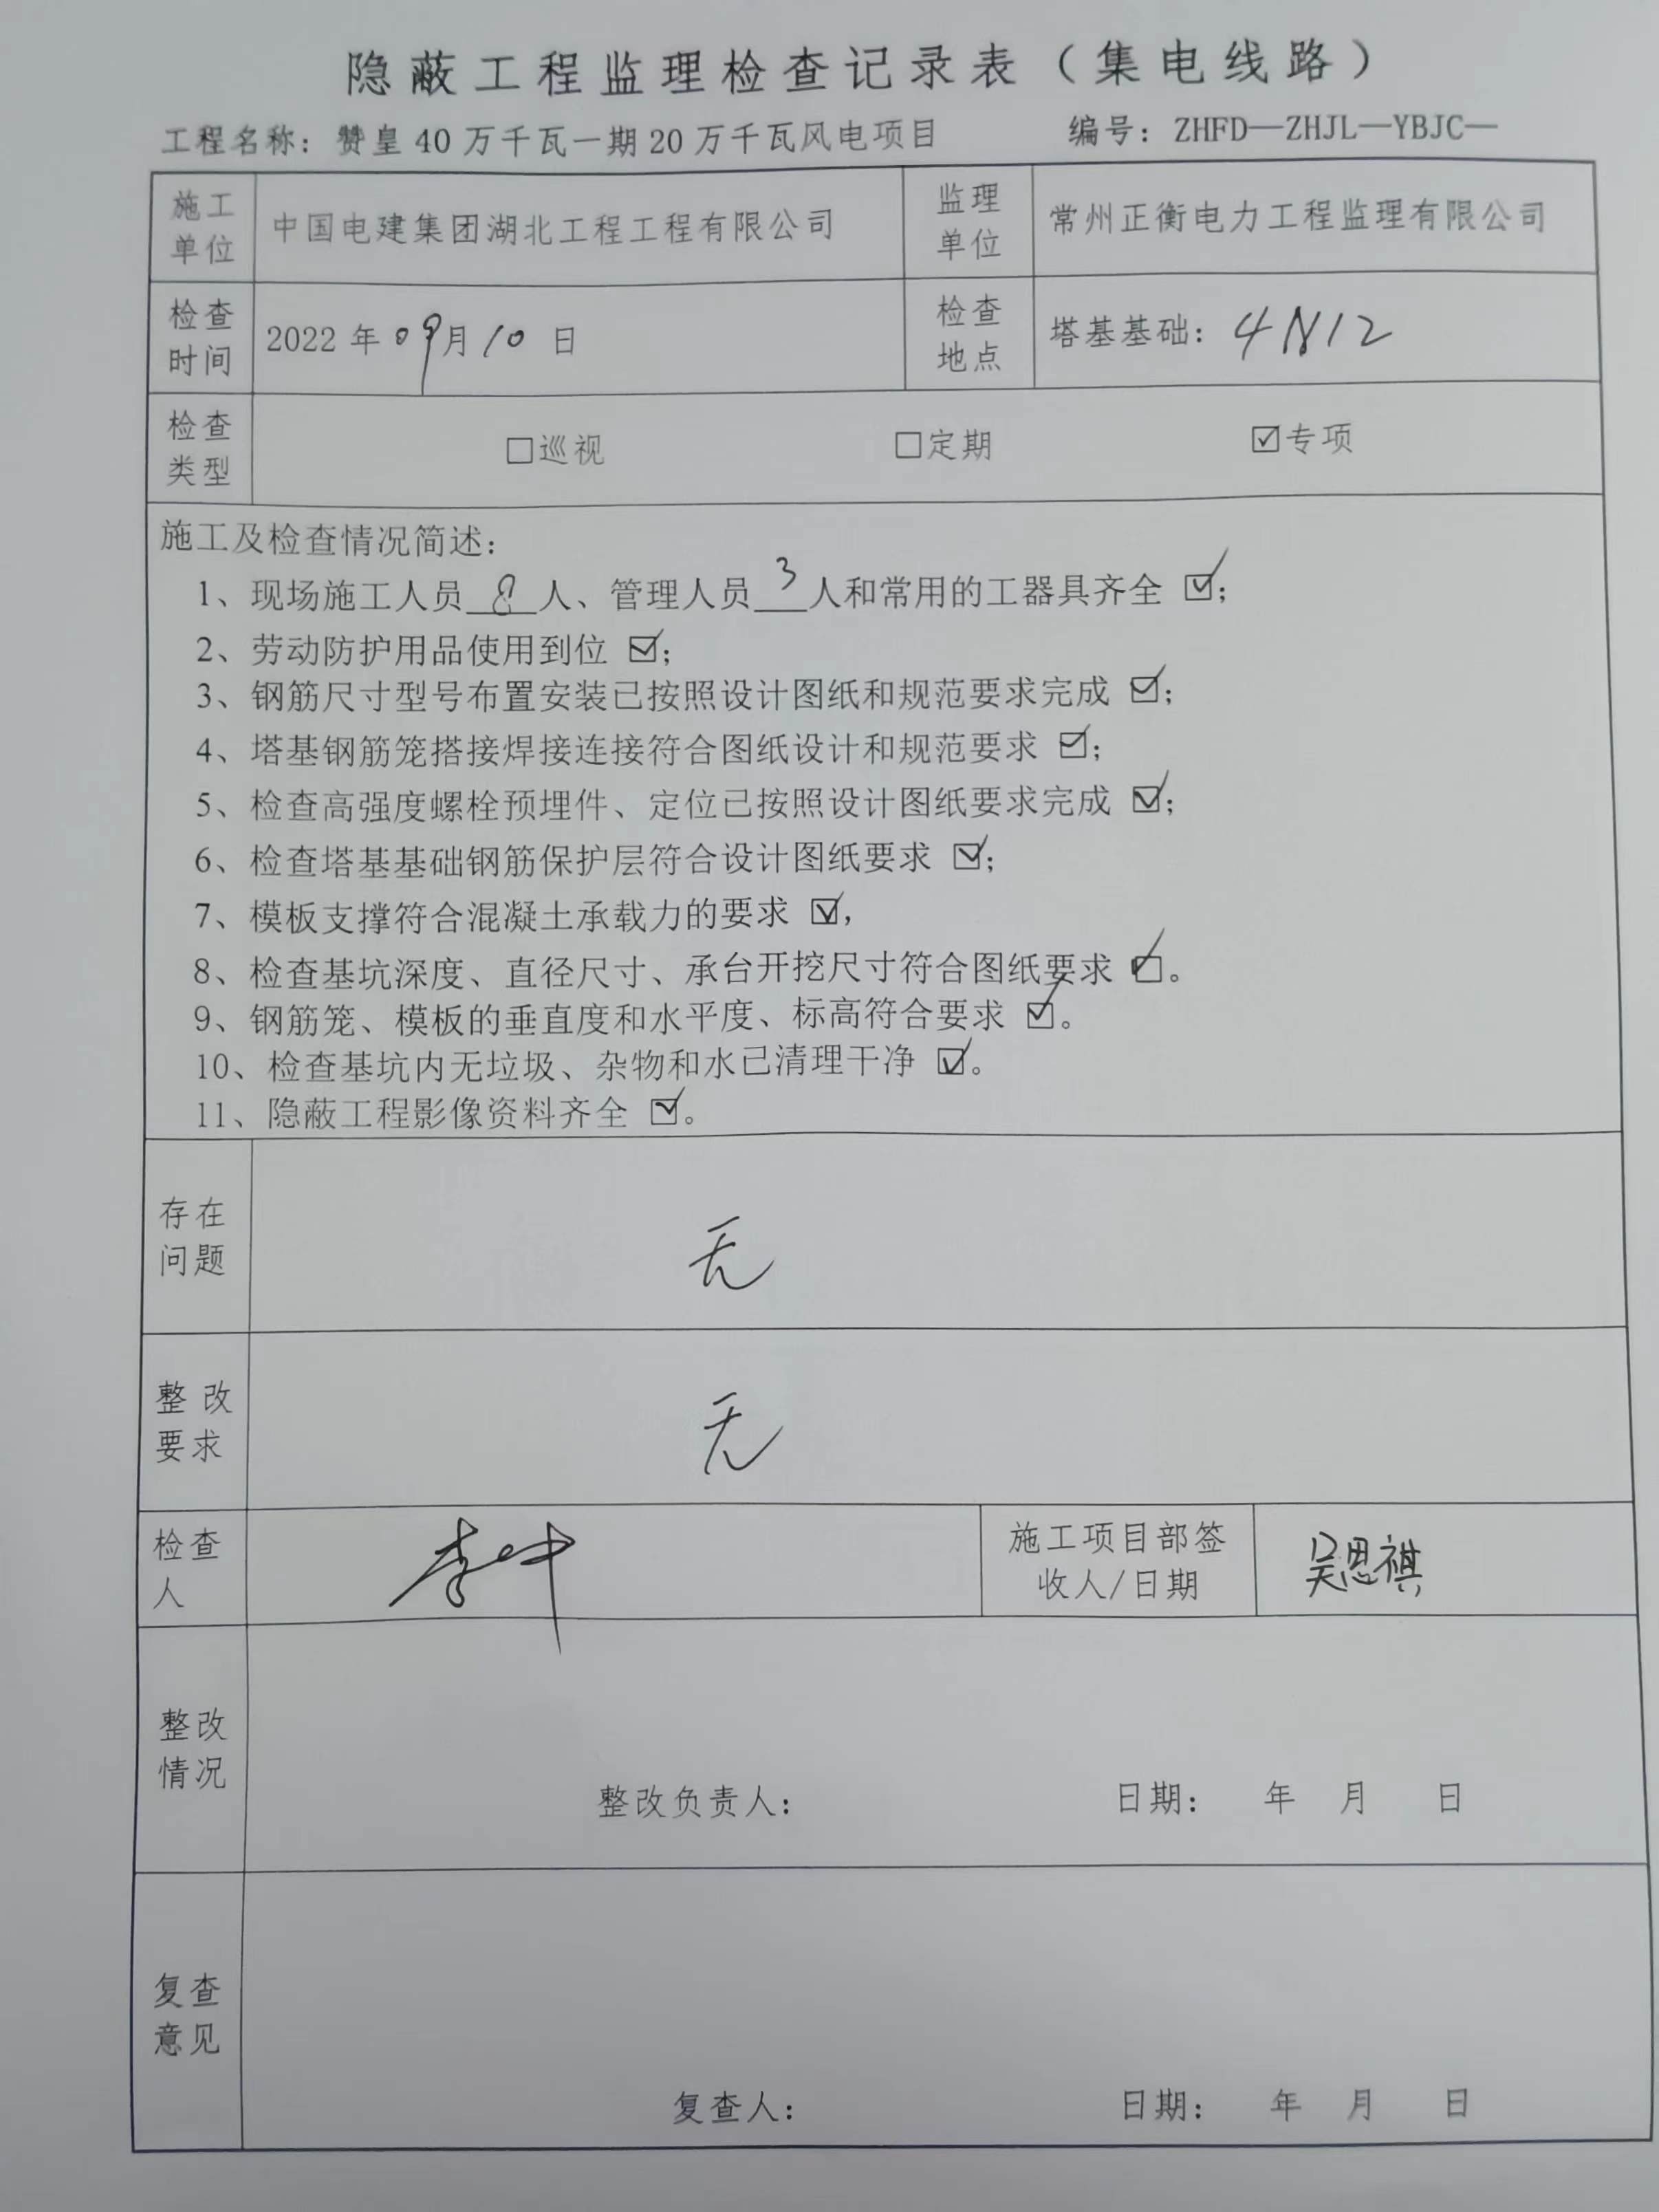 隐蔽工程监理检查记录表（集电线路）
工程名称：赞皇40万千瓦一期20万千瓦风电项目 编号：ZHFD—ZHJL—YBJC—
施工单位 中国电建集团湖北工程工程有限公司 监理单位 常州正衡电力工程监理有限公司
检查时间 2022年09月10日 检查地点 塔基基础：4N12
检查类型 □巡视 □定期 ☑专项
施工及检查情况简述：
1、现场施工人员8人、管理人员3人和常用的工器具齐全☑；
2、劳动防护用品使用到位☑；
3、钢筋尺寸型号布置安装已按照设计图纸和规范要求完成☑；
4、塔基钢筋笼搭接焊接连接符合图纸设计和规范要求☑；
5、检查高强度螺栓预埋件、定位已按照设计图纸要求完成☑；
6、检查塔基基础钢筋保护层符合设计图纸要求☑；
7、模板支撑符合混凝土承载力的要求☑，
8、检查基坑深度、直径尺寸、承台开挖尺寸符合图纸要求☑。
9、钢筋笼、模板的垂直度和水平度、标高符合要求☑。
10、检查基坑内无垃圾、杂物和水已清理干净☑。
11、隐蔽工程影像资料齐全☑。
存在问题 无
整改要求 无
检查人 施工项目部签收人/日期 吴思祺
整改情况
整改负责人： 日期： 年 月 日
复查意见
复查人： 日期： 年 月 日